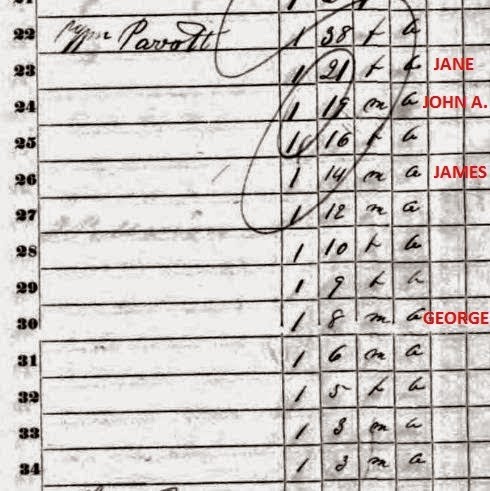 22 Wm Parrott 1 38 f
23 1 21 f JANE
24 1 19 m JOHN A.
25 1 16 f
26 1 14 m JAMES
27 1 12 m
28 1 10 f
29 1 9 f
30 1 8 m GEORGE
31 1 6 m
32 1 5 f
33 1 3 m
34 1 3 m